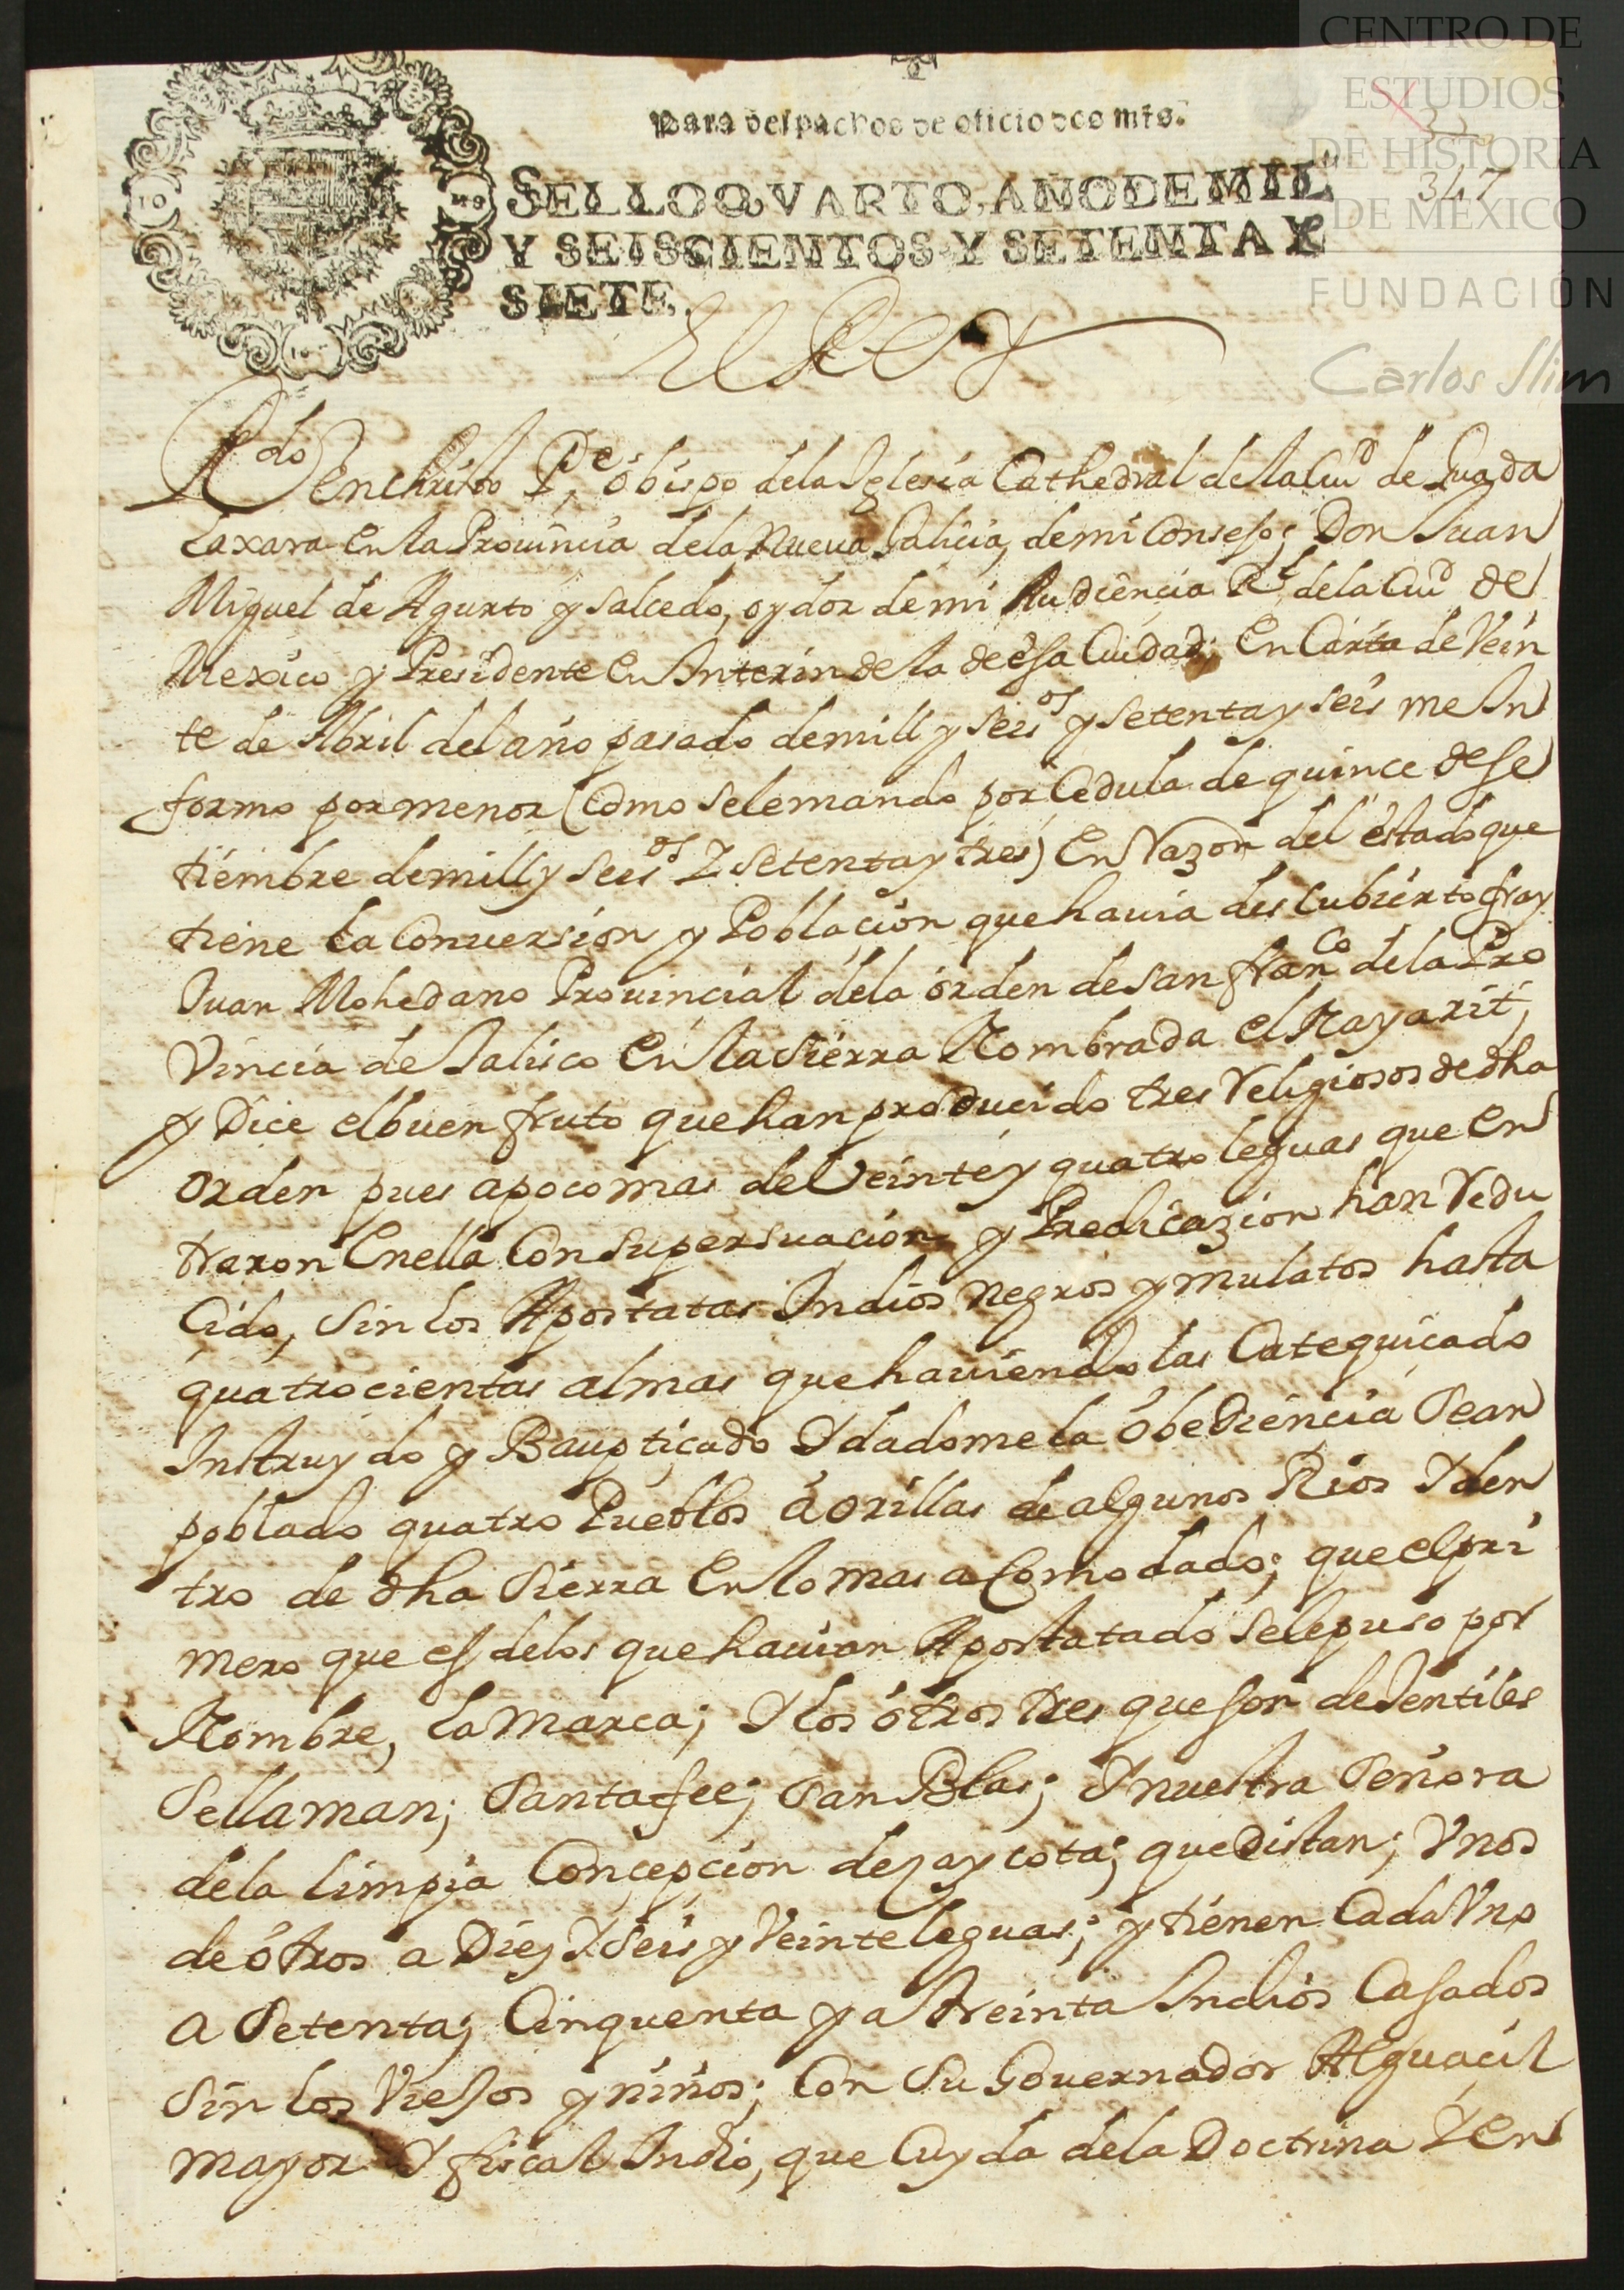 CENTRO DE
ESTUDIOS
DE HISTORIA
DE MEXICO
FUNDACIÓN
Carlos Slim
347
para despachos de oficio dos mrs.
SELLO QVARTO, AÑO DE MIL
Y SEISCIENTOS Y SETENTA Y
SIETE.
El Rey
Rdo en christo Pe, obispo dela Iglesia Cathedral de la Ciud de Guada
laxara en la Prouincia dela Nueva Galicia, demi Consejo; Don Juan
Miguel de Agurto y salcedo, oydor demi Audiencia Rl dela Ciud de
Mexico y Presidente en Interin de la de esa Ciudad; En Carta de Vein
te de Abril del año pasado demill y seisos y setenta y seis me In
formo por menor (como sele mando por Cedula de quince dese
tiembre demill y seisos y setenta y tres) En Razon del estado que
tiene la Conuersion y Poblacion que hauia descubierto fray
Juan Mohedano Prouincial dela orden de san franco dela Pro
Vincia de Jalisco en la sierra Nombrada el Nayarit;
y Dice el buen fruto que han producido tres Religiosos de dha
orden pues apoco mas de Veinte y quatro leguas que en
traron en ella Con su persuacion y Predicazion han Redu
cido, sin los Apostatas Indios negros y mulatos hasta
quatrocientas almas que hauiendo las Catequicado
Instruydo y Baupticado Y dadome la obediencia sean
poblado quatro Pueblos á orillas de algunos Rios Y den
tro de dha sierra En lo mas acomodado; que el pri
mero que es delos que hauian Apostatado sele puso por
Nombre, la Marca; Y los otros tres que son de Jentiles
sellaman; santa fee; san Blas; Y nuestra señora
dela limpia Concepcion de zaycota; que Distan; Vnos
de otros a Diez Y seis y Veinte leguas; y tienen Cada Vno
a setenta; Cinquenta y a treinta Indios Casados
sin los Viejos y niños; Con su Gouernador Alguacil
mayor Y fiscal Indio, que Cuyda dela Doctrina Y en